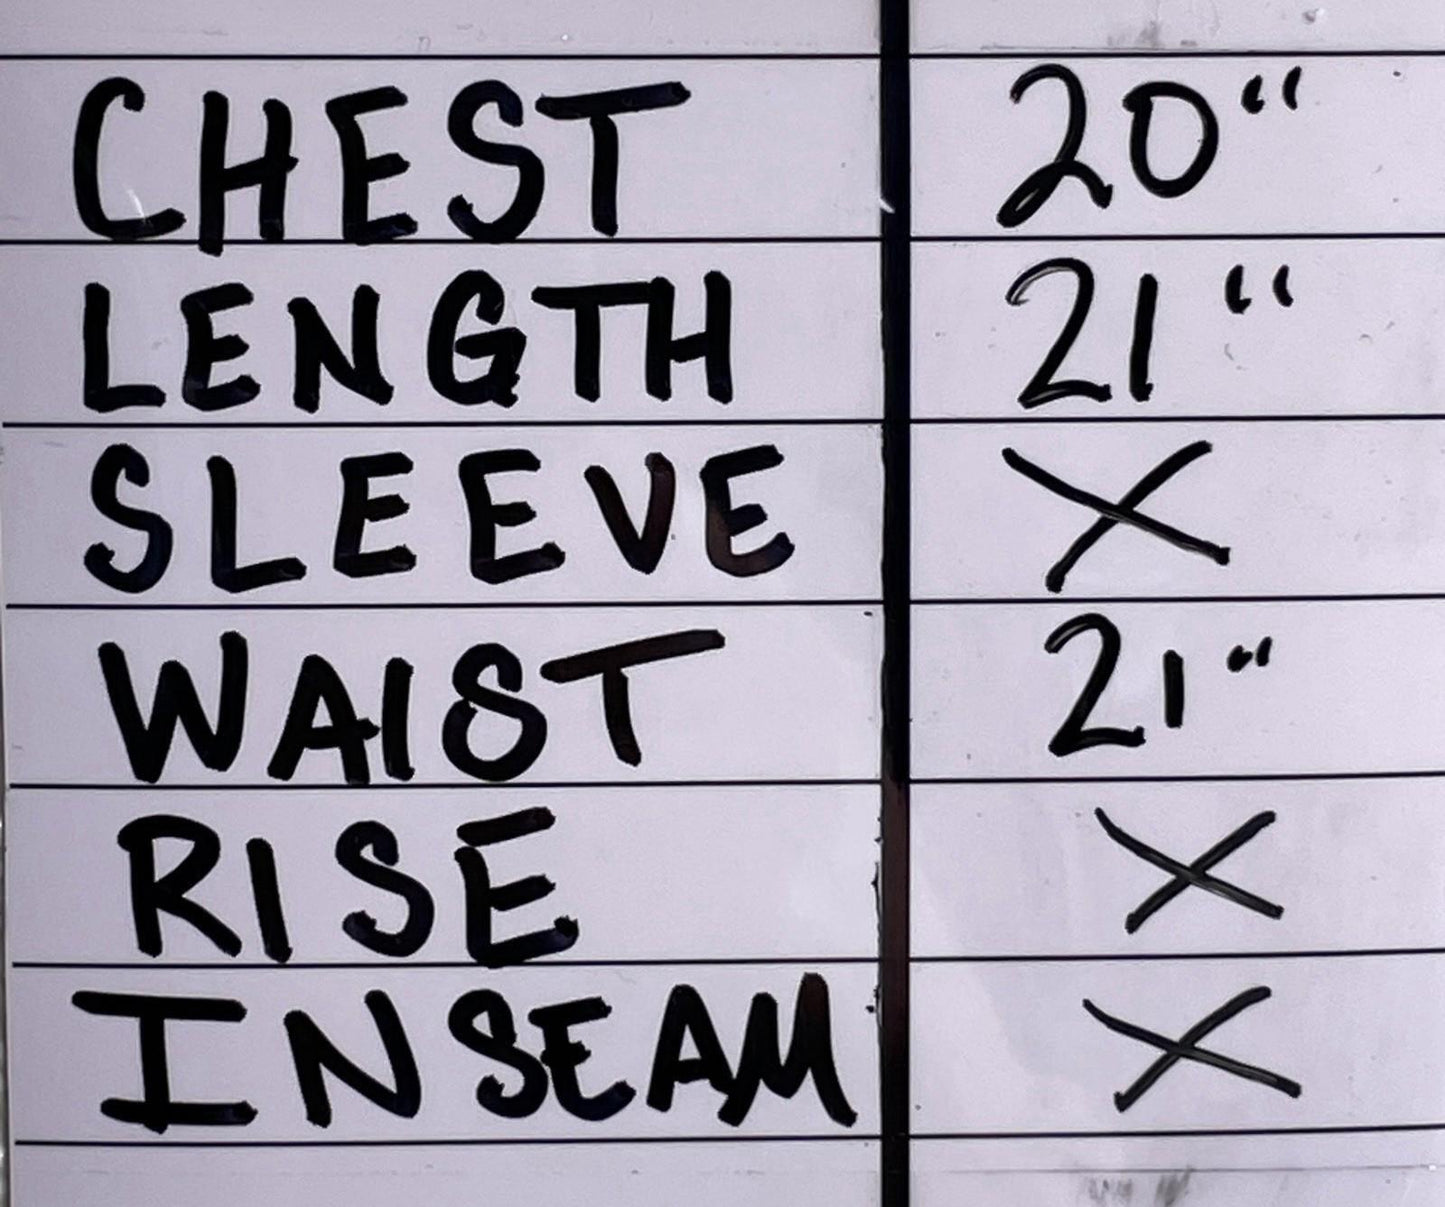 CHEST 20"
LENGTH 21"
SLEEVE X
WAIST 21"
RISE X
INSEAM X